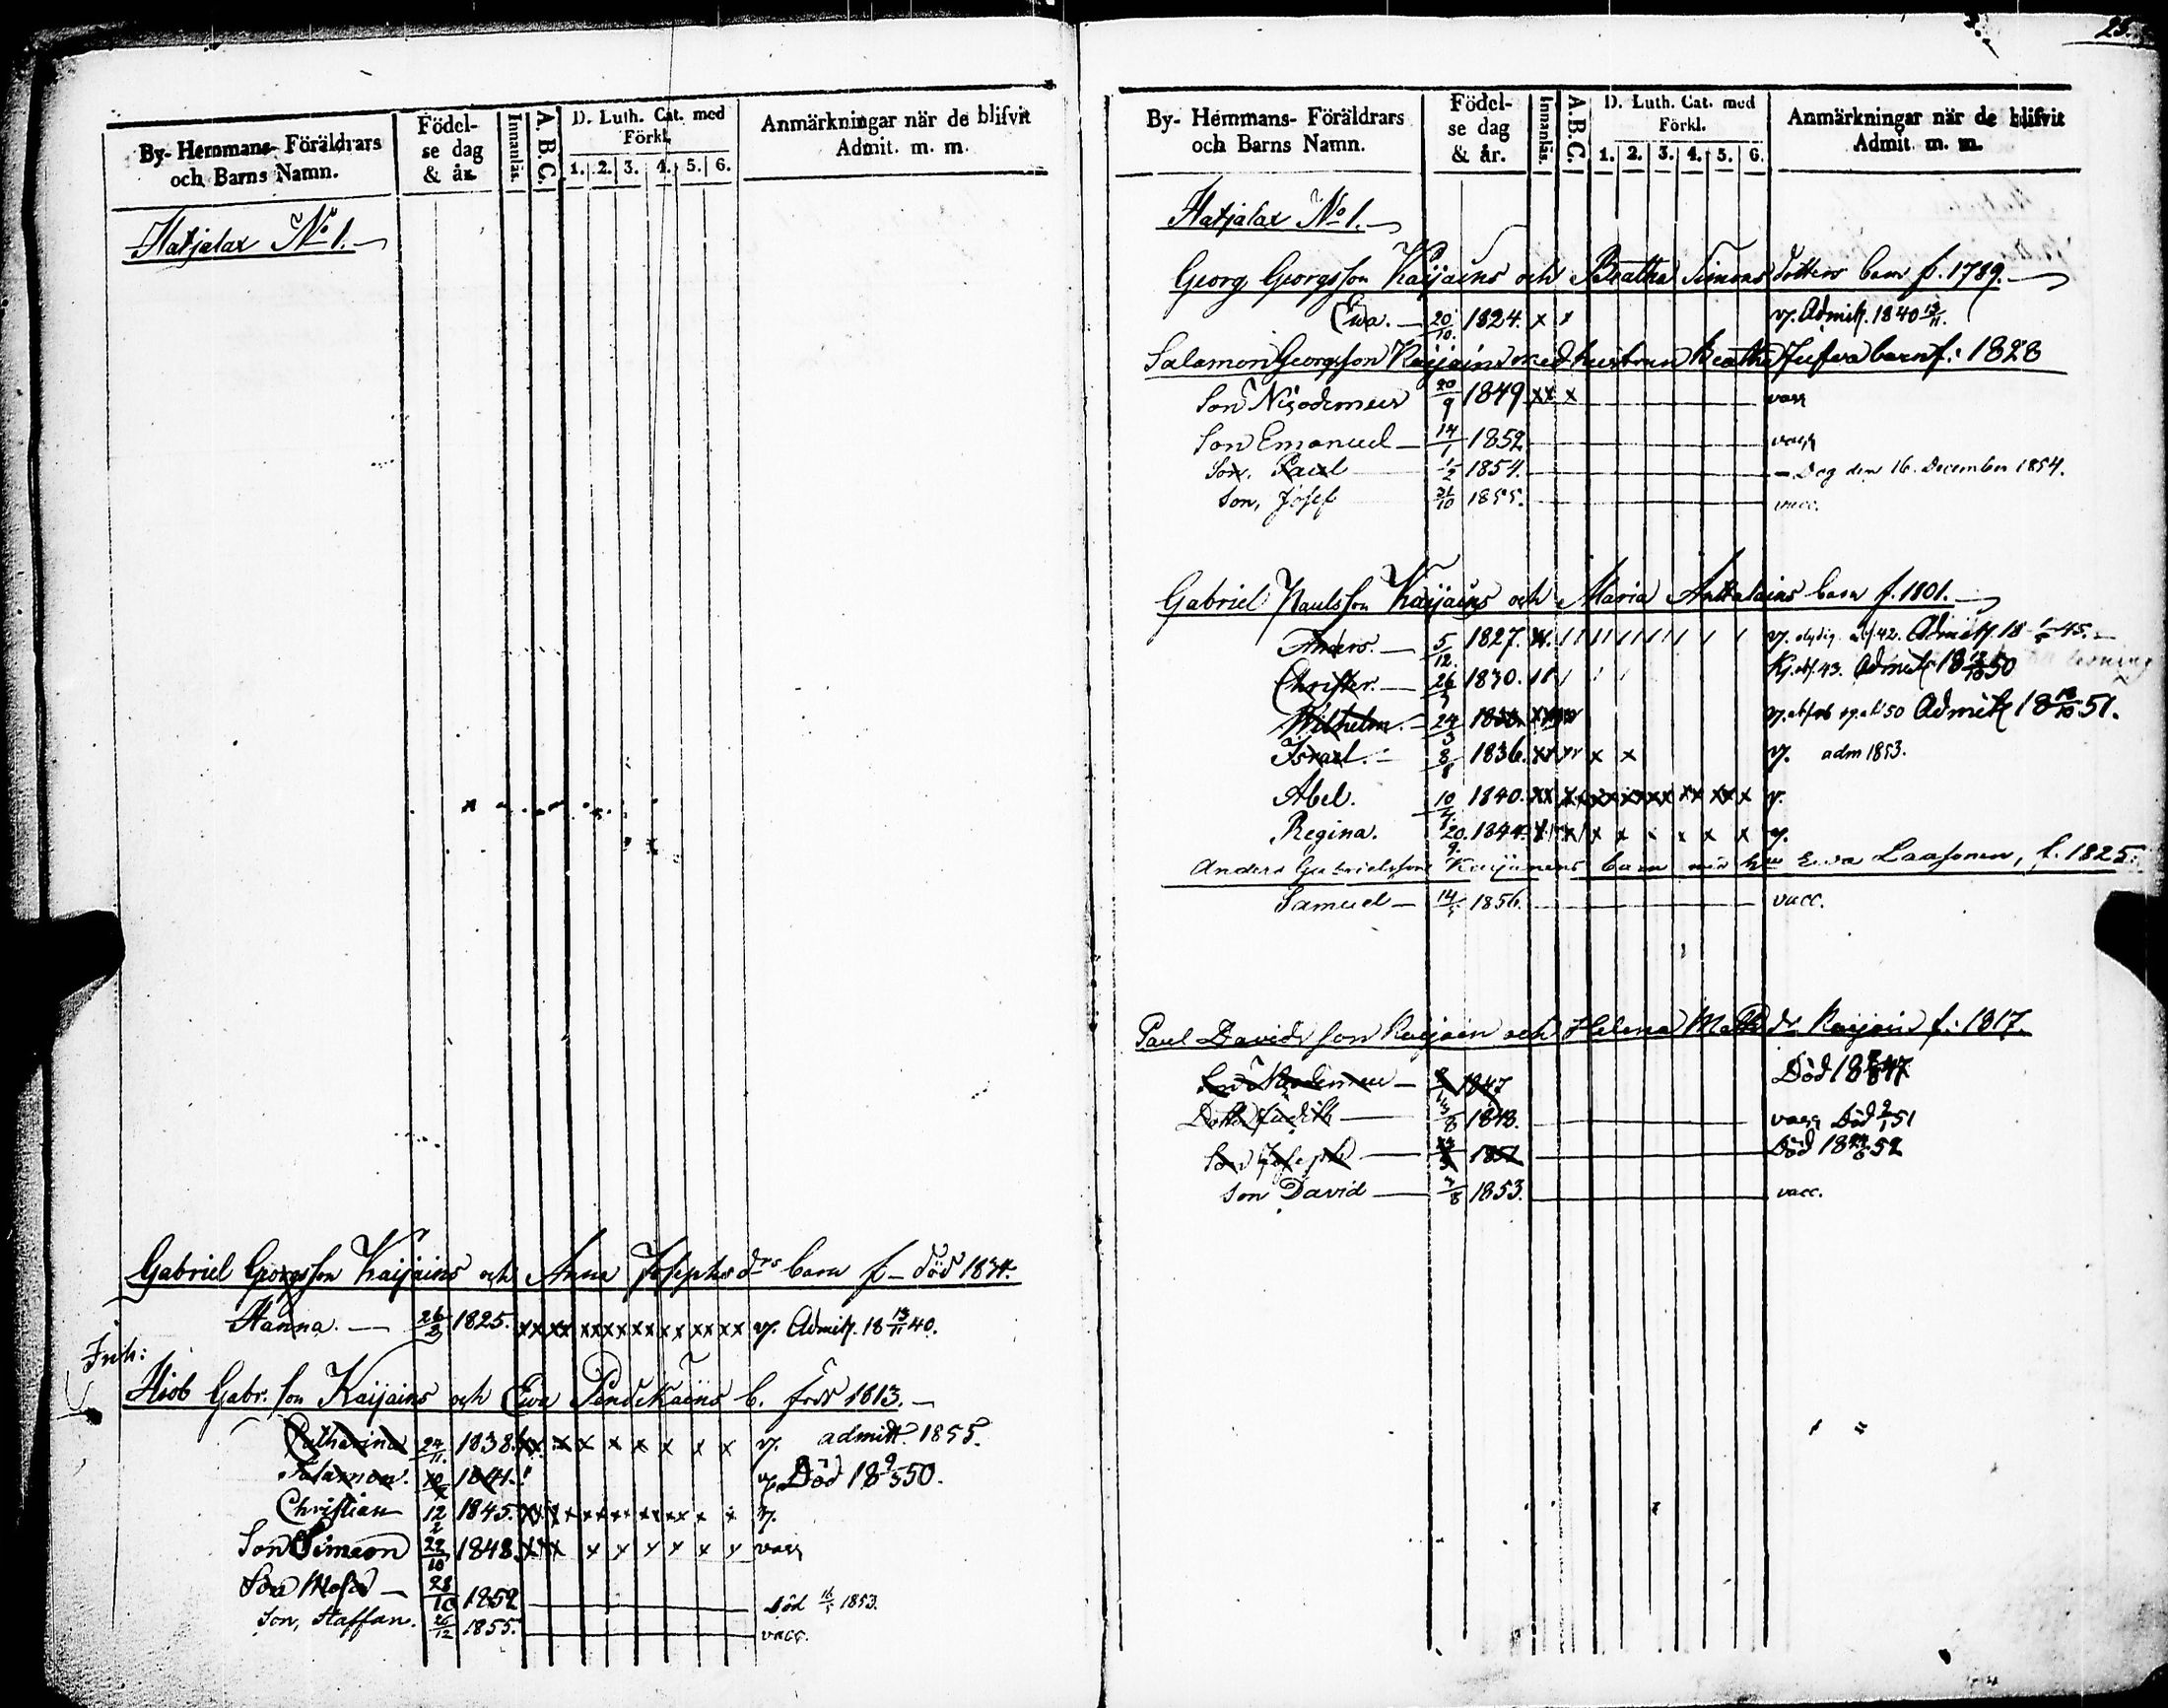 By- Hemmans- Föräldrars och Barns Namn.
Födel- se dag & år.
Innanläs.
A. B. C.
D. Luth. Cat. med Förkl.
1. 2. 3. 4. 5. 6.
Anmärkningar när de blifvit Admit. m. m.
Hatjalax No 1.
Gabriel Georgsson Kaijains och Anna Josephsdrs barn f— död 1834.
Hanna. — 26/2 1825. xx xx xx xx xx xx xx xx v. Admitt. 18 13/11 40.
Inh:
Hiob Gabr. son Kaijains och Ewa Pendikains b. född 1813. —
Catharina 24/11. 1838. v. admitt. 1855.
Salamon. 1841. v. Död 18 9/5 50.
Christian 12/2 1845. v.
Son Simeon 22/10 1848. vacc
Son Moses — 28/10 1852 död 16/5 1853.
Son, Staffan. 26/12 1855. vacc.
23.
By- Hemmans- Föräldrars och Barns Namn.
Födel- se dag & år.
Innanläs.
A. B. C.
D. Luth. Cat. med Förkl.
1. 2. 3. 4. 5. 6.
Anmärkningar när de blifvit Admit. m. m.
Hatjalax No 1.
Georg Georgsson Kaijains och Beatha Simons dotters barn f. 1789.
Ewa. — 20/10. 1824. x x v. Admitt. 1840 13/11.
Salamon Georgsson Kaijains med hustrun Beatha barn f: 1828
Son Nicodemus 20/9 1849 xx x vacc
Son Emanuel — 14/1 1852 vacc
Son. Paul 1/2 1854. — Dog den 16. December 1854.
Son, Josef 31/10 1855. vacc.
Gabriel Paulsson Kaijains och Maria Anttalains barn f. 1801.
Anders. — 5/12. 1827. Admitt. 45.
Christer. — 26 1830. 43. Admitt 50
Wilhelm. — 24/3 v. 50 Admitt 18 51.
Israel. — 8/8 1836. xx x x v. adm 1853.
Abel. 10 1840. v.
Regina. 20/9. 1844. v.
Anders Gabrielsson Kaijainens barn med hu Ewa Laasonen, f. 1825.
Samuel — 14 1856. vacc.
Paul Davids son Kaijain och Helena Matts dr Kaijain f: 1817.
Son Nicodemus — 1847 Död 18 47
Dotter Judith — 1848. vacc Död 51
Son Joseph — 1852 Död 18 52
Son David — 7/8 1853. vacc.